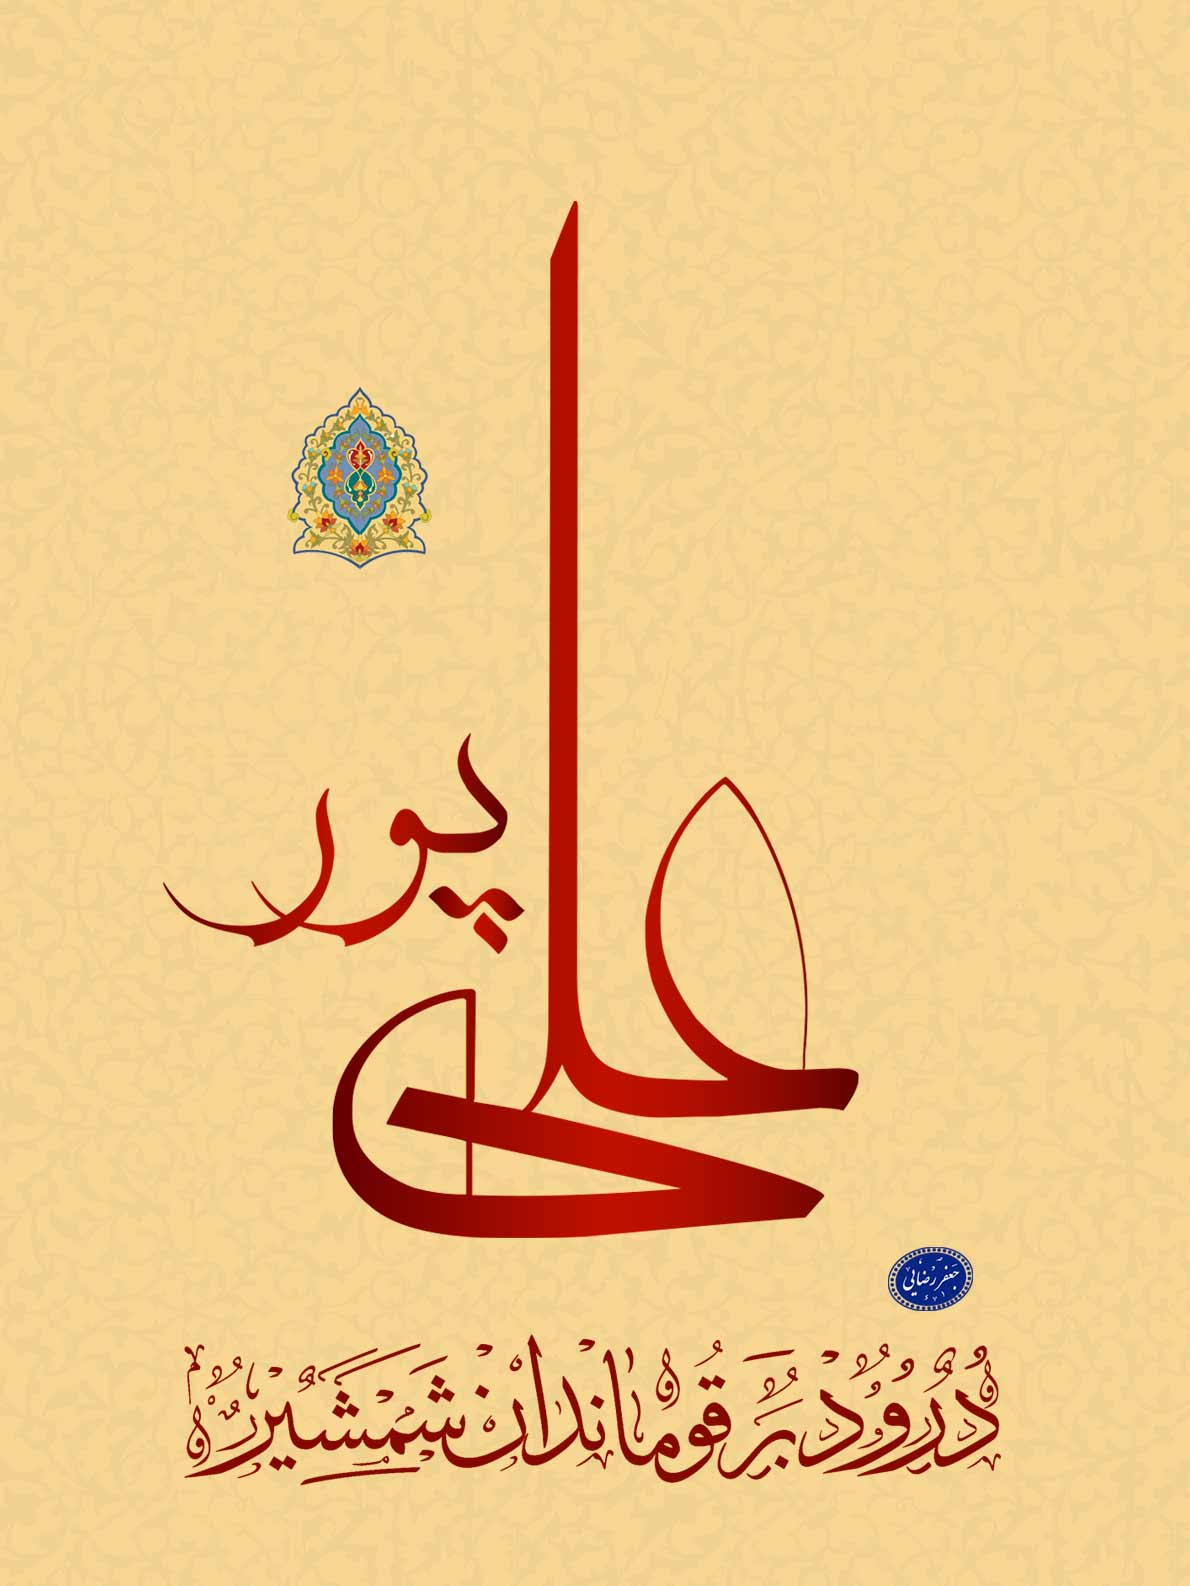 علی پور
جعفر رضایی
درود بر قوماندان شمشیر